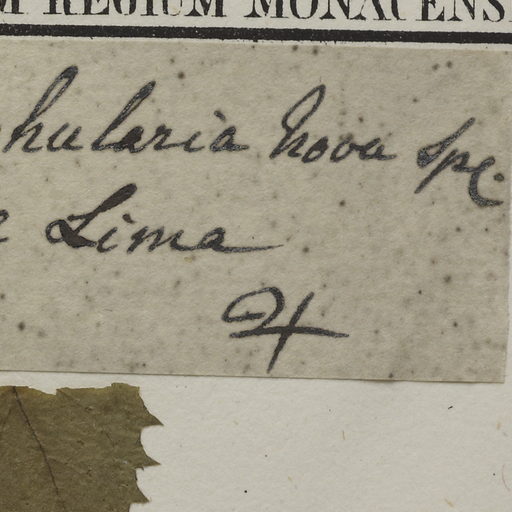 M REGIUM MONACENS
phularia Nova Spec.
e Lima
♃